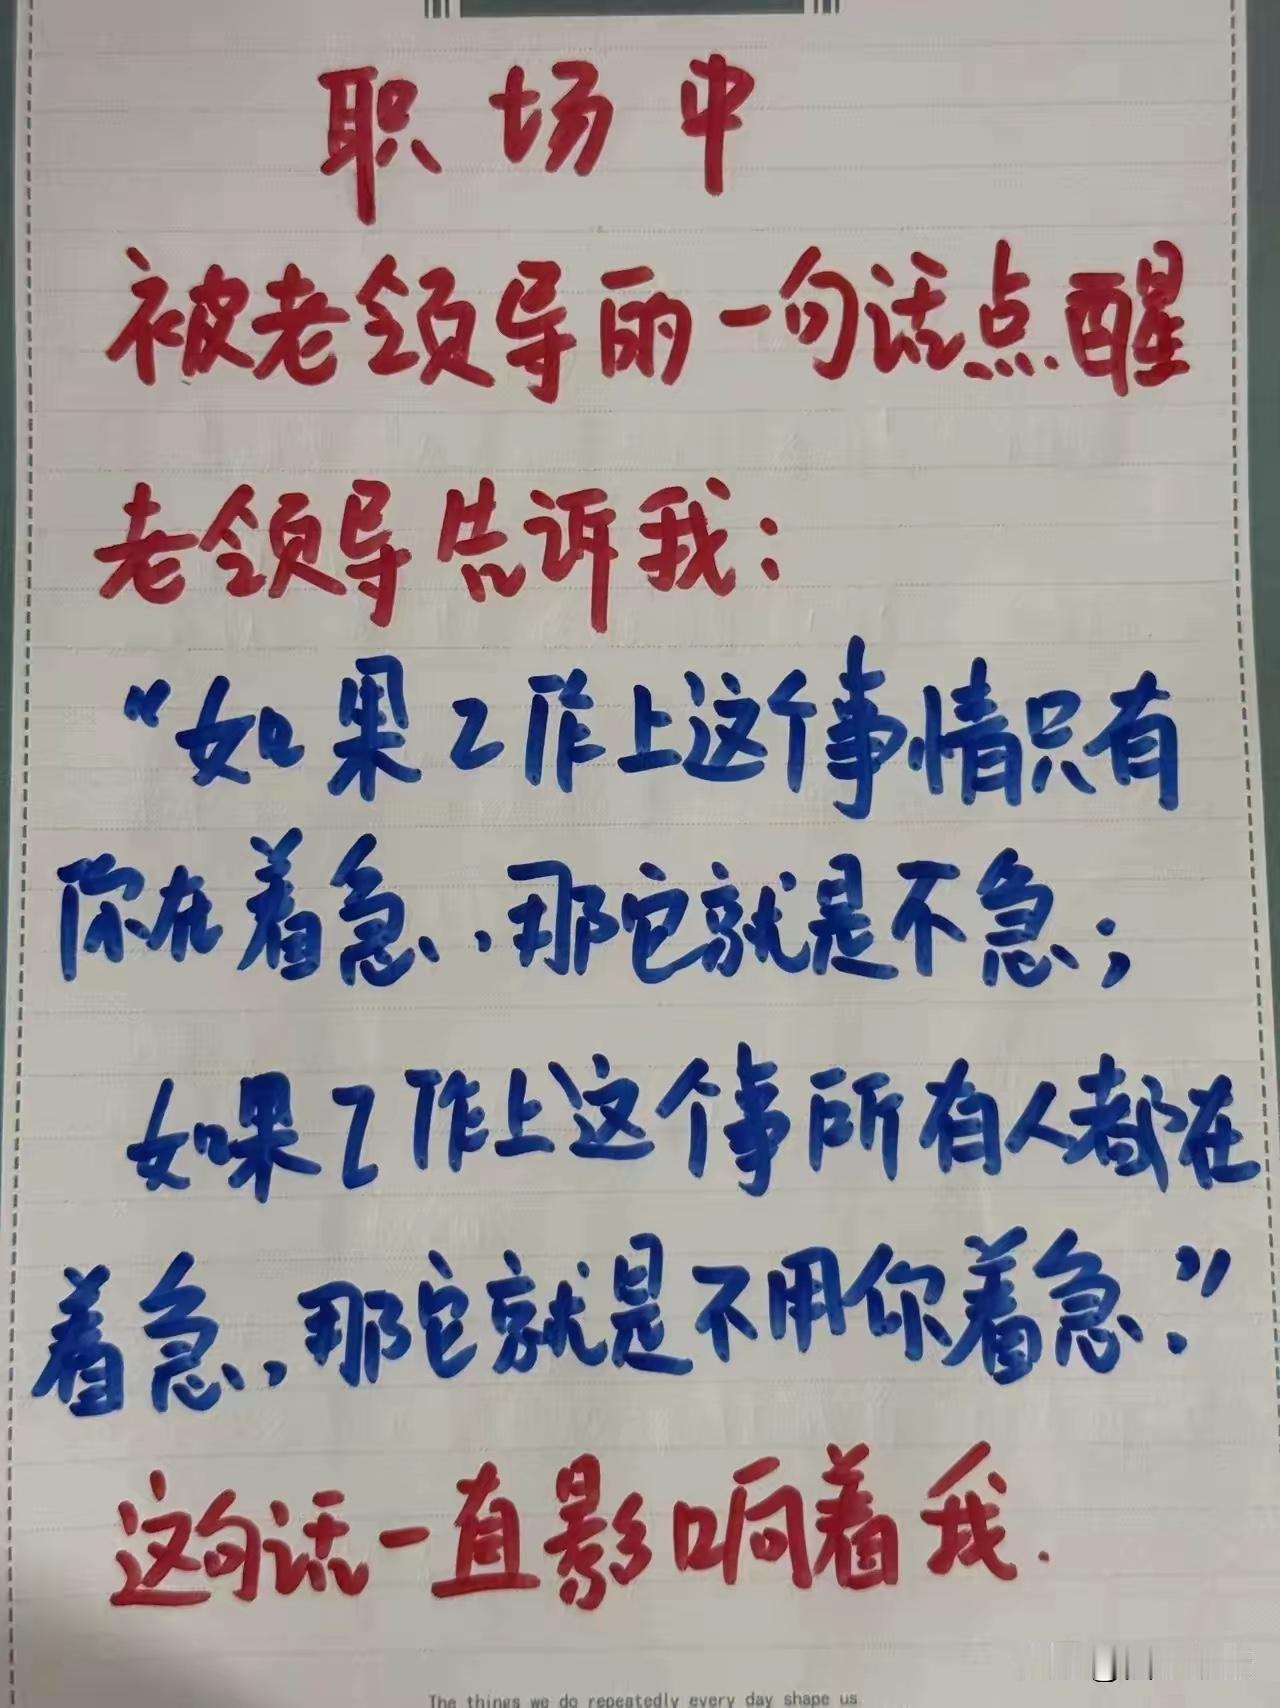 职场中
被老领导的一句话点醒
老领导告诉我：
“如果工作上这个事情只有
你在着急，那它就是不急；
如果工作上这个事所有人都在
着急，那它就是不用你着急.”
这句话一直影响着我.
The things we do repeatedly every day shape us